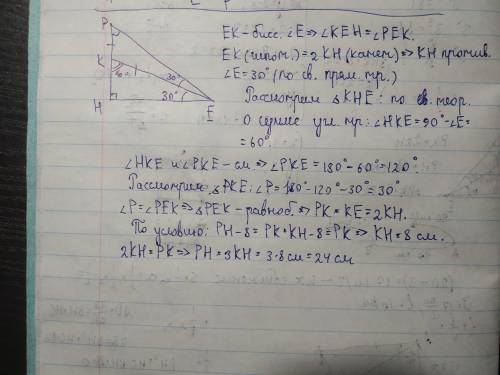 P
K
H
E
60°
30°
30°
EK-бисс. ∠E ⇒ ∠KEH = ∠PEK.
EK (гипот.) = 2KH (катет) ⇒ KH против.
∠E = 30° (по св. прям. тр.)
Рассмотрим △KHE: по св. теор.
О сумме угл. тр: ∠HKE = 90°-∠E=
= 60°.
∠HKE и ∠PKE - см. ⇒ ∠PKE = 180°-60° = 120°.
Рассмотрим △PKE: ∠P = 180°-120°-30° = 30°
∠P = ∠PEK ⇒ △PEK - равноб. ⇒ PK = KE = 2KH.
По условию: PH-8 = PK+KH-8 = PK ⇒ KH = 8 см.
2KH = PK ⇒ PH = 3KH = 3·8см = 24 см